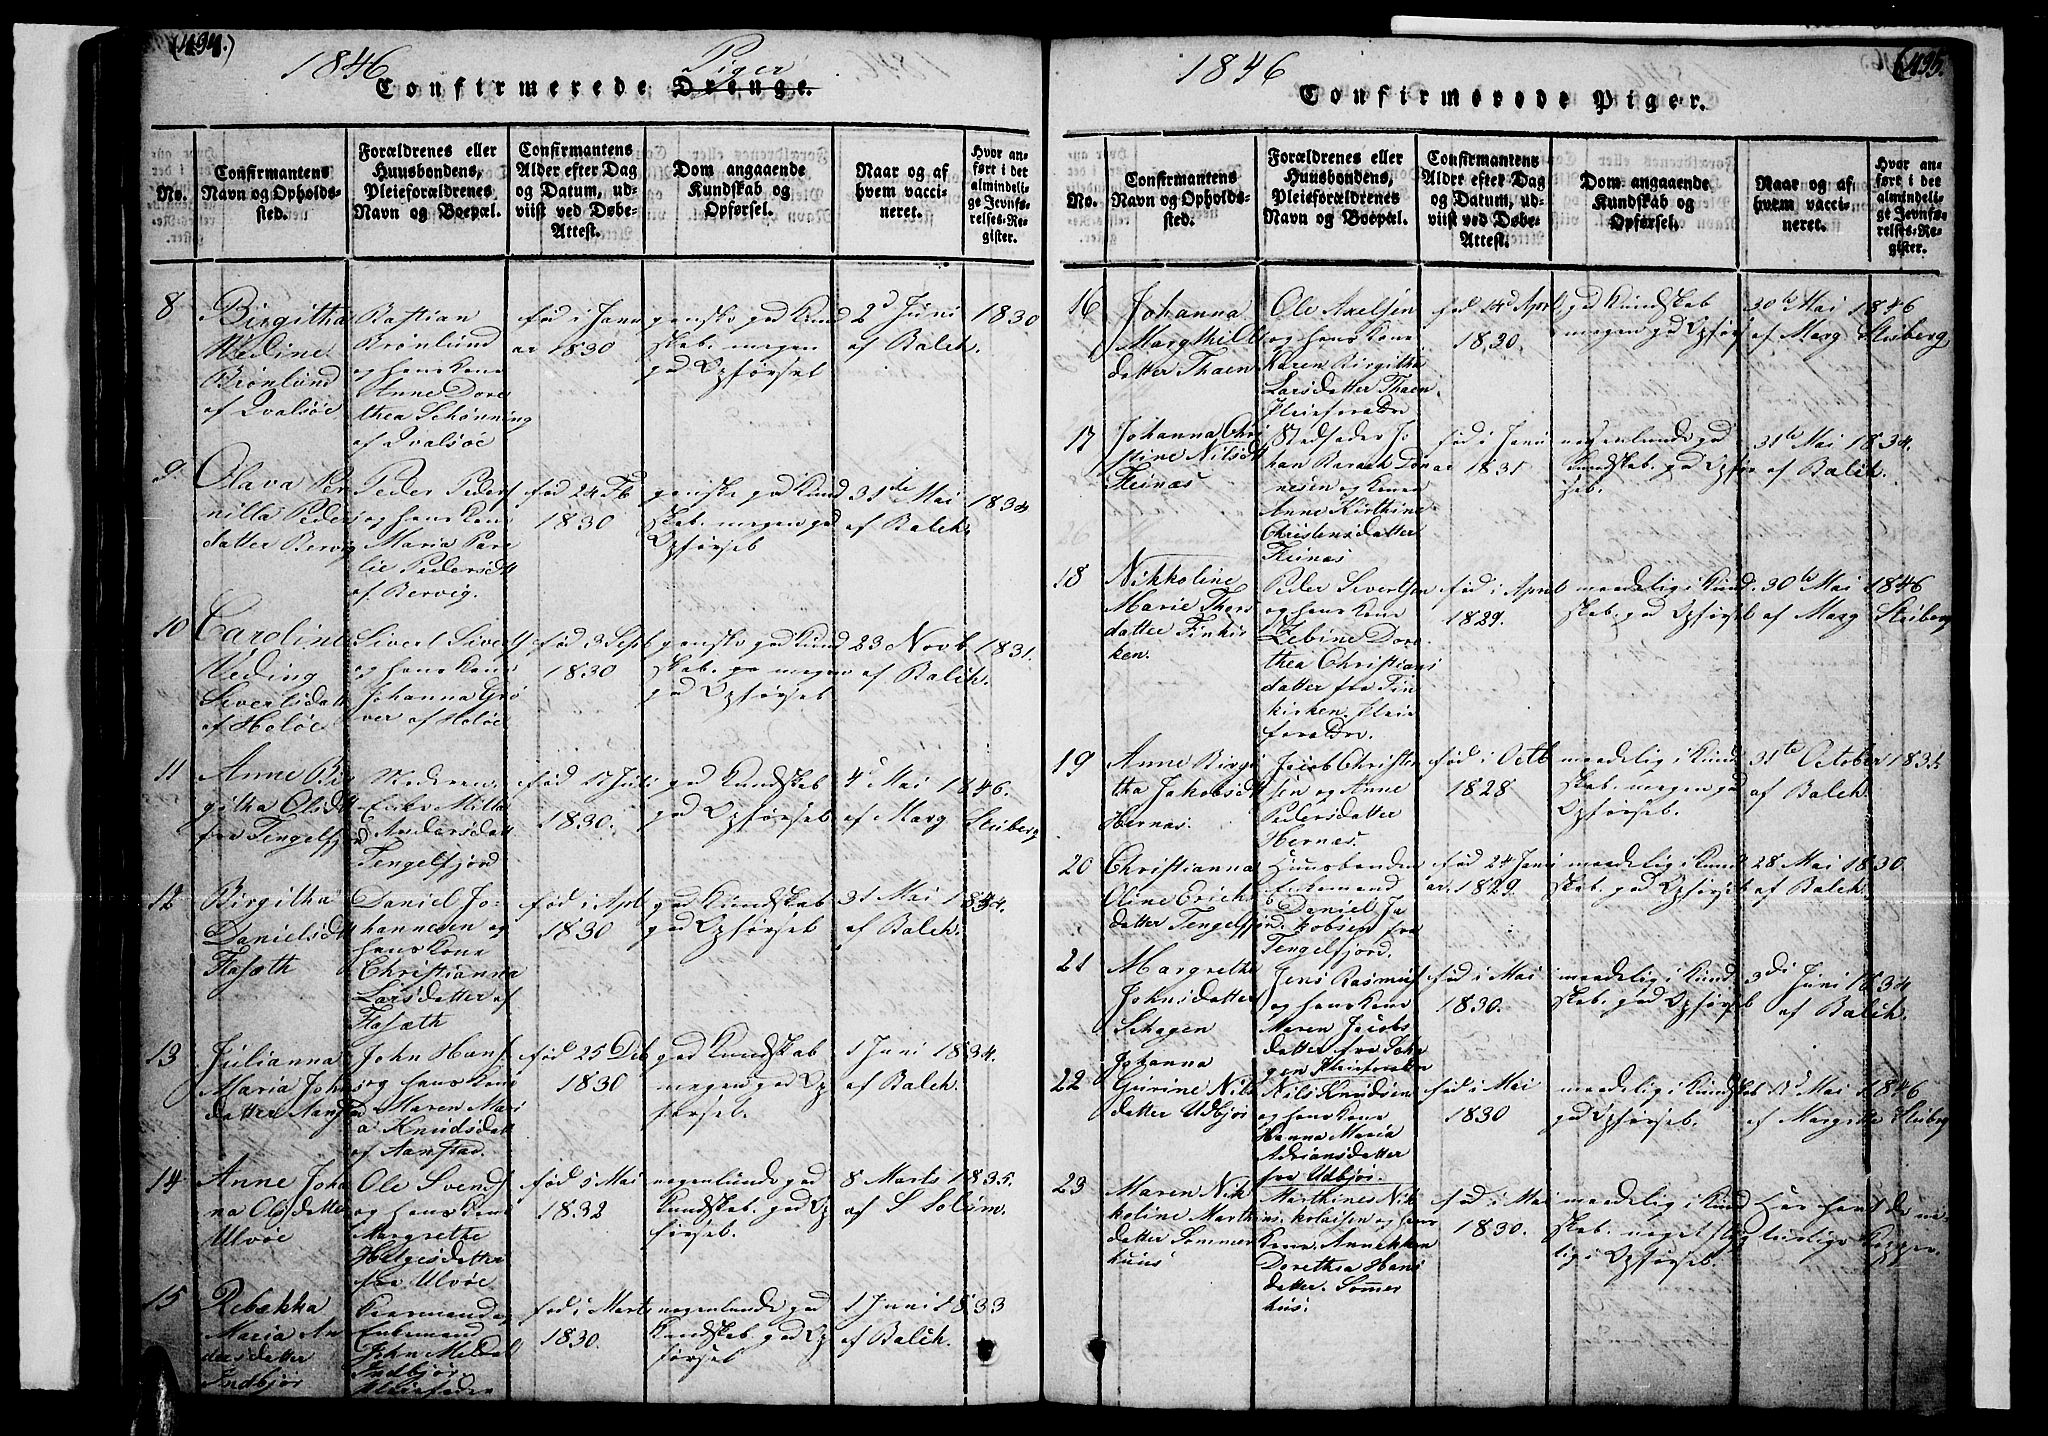 (494.)
1846 Piger
Confirmerede Drenge.
No.
Confirmantens
Navn og Opholds-
sted.
Forældrenes eller
Huusbondens,
Pleieforældrenes
Navn og Boepæl.
Confirmantens
Alder efter Dag
og Datum, ud-
viist ved Døbe-
Attest.
Dom angaaende
Kundskab og
Opførsel.
Naar og af
hvem vacci-
neret.
Hvor an-
ført i det
almindeli-
ge Jevnfø-
relses-Re-
gister.
8
Birgitha
Brönlund
af Qvalsöe
Bastian
Brönlund
og hans Kone
Anne Dore
thea Schönning
af Qvalsöe
fød i Janu
ar 1830
ganske god Kund
skab. megen
god Opførsel
2d Juni 1830
af Balch.
9.
Olava Per
nilla Peders
datter Bervig
Peder Peders
og hans Kone
Maria
Pedersdt
af Bervig.
fød 24 Fb
1830
ganske god Kund
skab. megen god
Opførsel
31te Mai 1834
af Balch.
10
Caroline
Veding
Sivertsdatt
af Holöe
Sivert Siverts
og hans Kone
Johanna Grö
ver af Holöe
fød 3 Sept
1830
ganske god Kund
skab. megen
god Opførsel
23 Novb 1831.
af Balch.
11
Anne Bir
githa Olsdt
fra Tengelfjord
Moderen
Enke Milla
Andersdatt
Tengelfjord
fød 17 Juli
1830.
god Kundskab
god Opførsel
4d Mai 1846.
af Marg Stuberg
12
Birgitha
Danielsdt
Flasæth
Daniel Jo-
hannesen og
hans Kone
Christianna
Larsdatter af
Flasæth
fød i Apl
1830
god Kundskab
god Opførsel
31 Mai 1834.
af Balch.
13
Julianna
Maria Johns
datter Aanstad
John Hans
og hans Kone
Maren Mari
a Knudsdatt
af Aanstad.
fød 25 Deb
1830
god Kundskab
megen god Op
førsel.
1 Juni 1834.
af Balch.
14
Anne Joha
na Olsdatter
Ulvöe
Ole Svends
og hans Kone
Margrethe
Helgesdatter
fra Ulvöe
fød 5 Mai
1832
nogenlunde god
Kundskab. god Op
førsel.
8 Marts 1835.
af S Solum.
15
Rebækka
Maria An
dersdatter
Indbjör
Enkemand
John
Indbjör
Pleiefader
fød i Marts
1830.
nogenlunde god
Kundskab. god Op
førsel
1 Juni 1833
af Balch.
(495.
1846
Confirmerede Piger.
No.
Confirmantens
Navn og Opholds-
sted.
Forældrenes eller
Huusbondens,
Pleieforældrenes
Navn og Boepæl.
Confirmantens
Alder efter Dag
og Datum, ud-
viist ved Døbe-
Attest.
Dom angaaende
Kundskab og
Opførsel.
Naar og af
hvem vacci-
neret.
Hvor an-
ført i det
almindeli-
ge Jevnfø-
relses-Re-
gister.
16
Johanna
datter Thaen
Ole Axelsen
og hans Kone
Karen Birgitha
Larsdatter Thaen.
Pleieforældre
fød 14d April
1830
god Kundskab
megen god Opførs
30te Mai 1846
af Marg Stuberg
17
Johanna Chri
stine Nilsdt
Steinæs
Stedfader Jo
han
nesen og Konen
Anne Kirthine
Christensdatter
Steinæs
fød i Janu
ar 1831
nogenlunde god
Kundskab. god Opfør
sel.
31te Mai 1834.
af Balch.
18
Nikkoline
Marie Thors
datter Finkir
ken.
Peder Sivertsen
og hans Kone
Zebine Dore
thea Christians
datter fra Fin
kirken. Pleie
forældre.
fød i April
1829.
maadelig i Kund
skab. god Opførsel
30te Mai 1846
af Marg Stuberg
19
Anne Birgi
tha Jakobsdt
Hernæs.
Jacob Christen
sen og Anne
Pedersdatter
Hernæs.
fød i Octb
1828
maadelig i Kund
skab. megen god
Opførsel.
31te October 1835
af Balch.
20
Christianna
Oline Erichs
datter Tengelfjord.
Huusbonden
Enkemand
Daniel Ja
kobsen fra
Tengelfjord.
fød 24 Janu
ar. 1829.
maadelig i Kund
skab. god Opførsel
28 Mai 1830.
af Balch.
21
Margrethe
Johnsdatter
Schagen
Jens Rasmus
og hans Kone
Maren Jacobs
datter fra Scha
gen Pleieforældre
fød i Mai
1830.
maadelig i Kund
skab. god Opførsel
3di Juni 1834
af Balch.
22
Johanna
Gurine Nils
datter Udbjör
Nils Knudsen
og hans Kone
Hanna Maria
Adriansdatter
fra Udbjör.
fød i Mai
1830
maadelig i Kundskab
god Opførsel.
Mai 1846
af Margrete Stuberg
23
Maren Nik
koline Marthins.
datter Sommer
huus
Marthines Nik
kolaisen og hans
Kone Annekken
Dorethea Hans
datter. Sommer
hus.
fød i Mai
1830.
maadelig i Kund
skab. noget
lig i Opførsel.
Har havt de na
turlige Kopper.